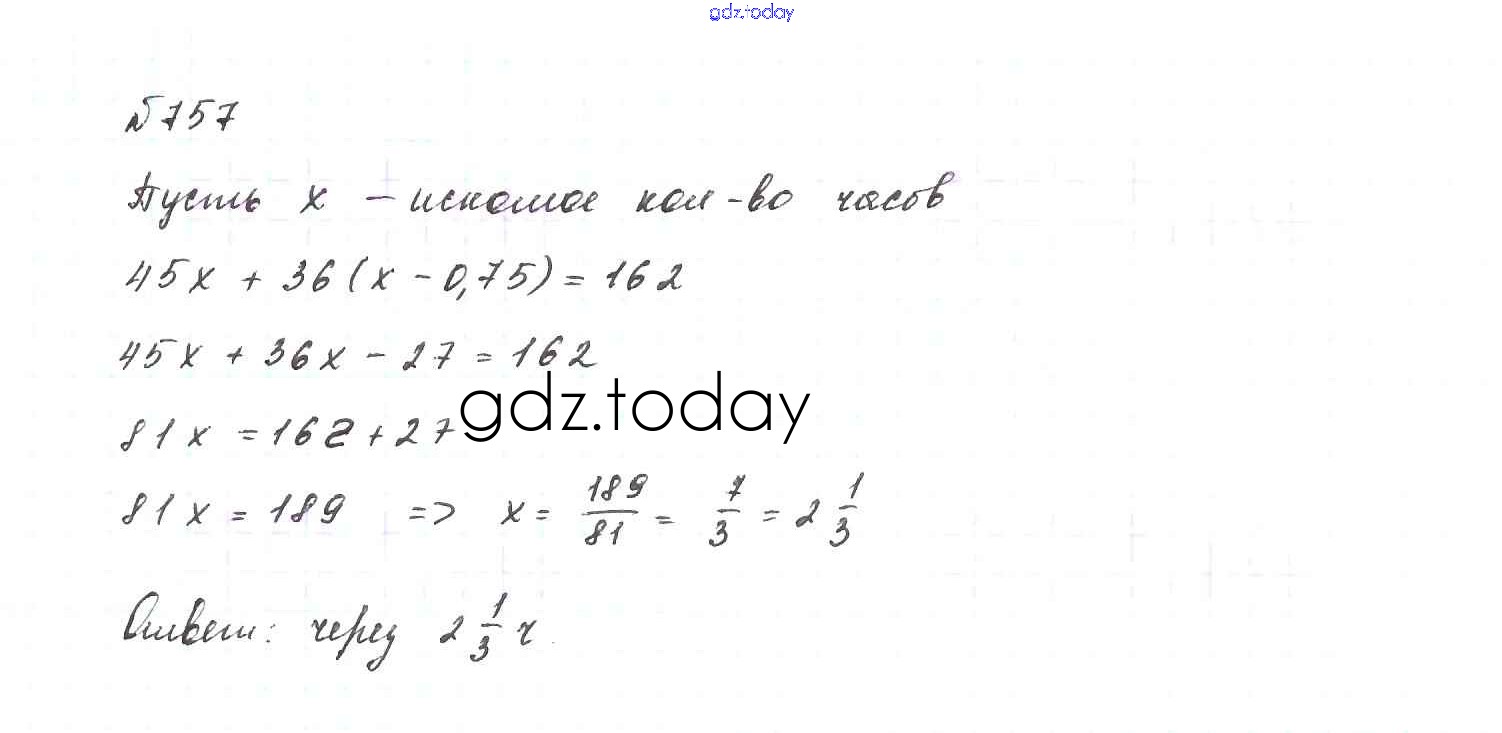 gdz.today
№757
Пусть x – искомое кол-во часов
45x + 36(x - 0,75) = 162
45x + 36x - 27 = 162
gdz.today
81x = 162 + 27
81x = 189 => x = 189/81 = 7/3 = 2 1/3
Ответ: через 2 1/3 ч.